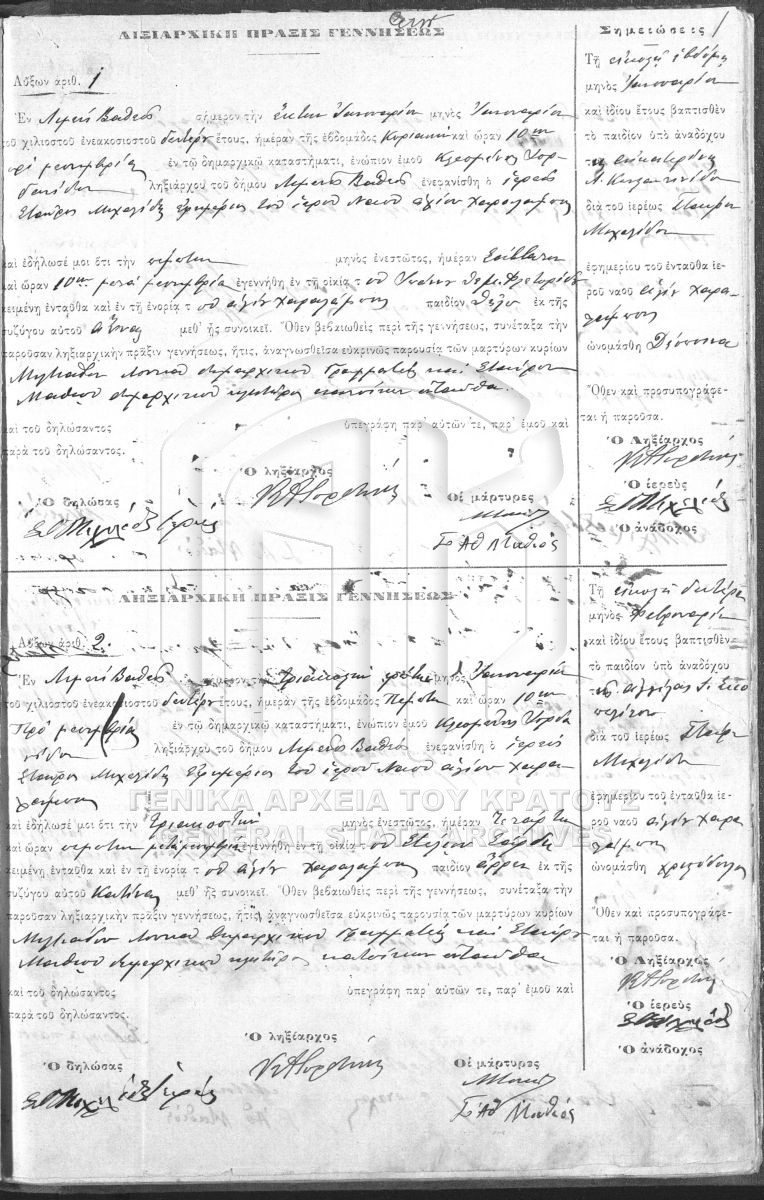 1
ΛΗΞΙΑΡΧΙΚΗ ΠΡΑΞΙΣ ΓΕΝΝΗΣΕΩΣ
Αὔξων ἀριθ. 1
Ἐν Λιμένι Βαθέος σήμερον τὴν ἕκτην Ἰανουαρίου μηνὸς Ἰανουαρίου
τοῦ χιλιοστοῦ ἐνεακοσιοστοῦ δευτέρου ἔτους, ἡμέραν τῆς ἑβδομάδος Κυριακὴν καὶ ὥραν 10ην
πρὸ μεσημβρίας ἐν τῷ δημαρχικῷ καταστήματι, ἐνώπιον ἐμοῦ Κλεομένους Ἰορ-
δανίδου ληξιάρχου τοῦ δήμου Λιμένος Βαθέος ἐνεφανίσθη ὁ ἱερεὺς
Σταῦρος Μιχαλίδης ἐφημέριος τοῦ ἱεροῦ Ναοῦ ἁγίου Χαραλάμπους
καὶ ἐδήλωσέ μοι ὅτι τὴν πέμπτην μηνὸς ἐνεστῶτος, ἡμέραν Σάββατον
καὶ ὥραν 10ην μετὰ μεσημβρίαν ἐγεννήθη ἐν τῇ οἰκίᾳ τοῦ
κειμένῃ ἐνταῦθα καὶ ἐν τῇ ἐνορίᾳ τοῦ ἁγίου Χαραλάμπους παιδίον θῆλυ ἐκ τῆς
συζύγου αὐτοῦ Ἄννας μεθ' ἧς συνοικεῖ. Ὅθεν βεβαιωθεὶς περὶ τῆς γεννήσεως, συνέταξα τὴν
παροῦσαν ληξιαρχικὴν πρᾶξιν γεννήσεως, ἥτις, ἀναγνωσθεῖσα εὐκρινῶς παρουσίᾳ τῶν μαρτύρων κυρίων
Μιλτιάδου Λουκᾶ δημαρχικοῦ γραμματέως καὶ Σταύρου
Μαθιοῦ δημαρχικοῦ κλητῆρος κατοίκων ἐνταῦθα.
καὶ τοῦ δηλώσαντος ὑπεγράφη παρ' αὐτῶν τε, παρ' ἐμοῦ καὶ
παρὰ τοῦ δηλώσαντος.
Ὁ ληξίαρχος
Ὁ δηλώσας
Οἱ μάρτυρες
Σ. Ἀθ. Μαθιός
Σημειώσεις
Τῇ εἰκοστῇ ἑβδόμῃ
μηνὸς Ἰανουαρίου
καὶ ἰδίου ἔτους βαπτισθὲν
τὸ παιδίον ὑπὸ ἀναδόχου
τῆς Αἰκατερίνης
διὰ τοῦ ἱερέως Σταύρου
Μιχαλίδου
ἐφημερίου τοῦ ἐνταῦθα ἱε-
ροῦ ναοῦ ἁγίου Χαρα-
λάμπους
ὠνομάσθη Δέσποινα
Ὅθεν καὶ προσυπογράφε-
ται ἡ παροῦσα.
Ὁ Ληξίαρχος
Ὁ ἱερεὺς
Ὁ ἀνάδοχος
ΛΗΞΙΑΡΧΙΚΗ ΠΡΑΞΙΣ ΓΕΝΝΗΣΕΩΣ
Αὔξων ἀριθ. 2.
Ἐν Λιμένι Βαθέος σήμερον τὴν τριακοστὴν πρώτην μηνὸς Ἰανουαρίου
τοῦ χιλιοστοῦ ἐνεακοσιοστοῦ δευτέρου ἔτους, ἡμέραν τῆς ἑβδομάδος Πέμπτην καὶ ὥραν 10ην
πρὸ μεσημβρίας ἐν τῷ δημαρχικῷ καταστήματι, ἐνώπιον ἐμοῦ Κλεομένους Ἰορδα
νίδου ληξιάρχου τοῦ δήμου Λιμένος Βαθέος ἐνεφανίσθη ὁ ἱερεὺς
Σταῦρος Μιχαλίδης ἐφημέριος τοῦ ἱεροῦ Ναοῦ ἁγίου Χαρα
λάμπους
καὶ ἐδήλωσέ μοι ὅτι τὴν τριακοστὴν μηνὸς ἐνεστῶτος, ἡμέραν Τετάρτην
καὶ ὥραν πέμπτην μετὰ μεσημβρίαν ἐγεννήθη ἐν τῇ οἰκίᾳ τοῦ Στελίου
κειμένῃ ἐνταῦθα καὶ ἐν τῇ ἐνορίᾳ τοῦ ἁγίου Χαραλάμπους παιδίον ἄρρεν ἐκ τῆς
συζύγου αὐτοῦ Καλίνας μεθ' ἧς συνοικεῖ. Ὅθεν βεβαιωθεὶς περὶ τῆς γεννήσεως, συνέταξα τὴν
παροῦσαν ληξιαρχικὴν πρᾶξιν γεννήσεως, ἥτις, ἀναγνωσθεῖσα εὐκρινῶς παρουσίᾳ τῶν μαρτύρων κυρίων
Μιλτιάδου Λουκᾶ δημαρχικοῦ γραμματέως καὶ Σταύρου
Μαθιοῦ δημαρχικοῦ κλητῆρος κατοίκων ἐνταῦθα
καὶ τοῦ δηλώσαντος ὑπεγράφη παρ' αὐτῶν τε, παρ' ἐμοῦ καὶ
παρὰ τοῦ δηλώσαντος.
Ὁ ληξίαρχος
Ὁ δηλώσας
Οἱ μάρτυρες
Σ. Ἀθ. Μαθιός
Τῇ εἰκοστῇ δευτέρᾳ
μηνὸς Φεβρουαρίου
καὶ ἰδίου ἔτους βαπτισθὲν
τὸ παιδίον ὑπὸ ἀναδόχου
διὰ τοῦ ἱερέως Σταύρου
Μιχαλίδου
ἐφημερίου τοῦ ἐνταῦθα ἱε-
ροῦ ναοῦ ἁγίου Χαρα
λάμπους
ὠνομάσθη
Ὅθεν καὶ προσυπογράφε-
ται ἡ παροῦσα.
Ὁ Ληξίαρχος
Ὁ ἱερεὺς
Ὁ ἀνάδοχος
ΓΕΝΙΚΑ ΑΡΧΕΙΑ ΤΟΥ ΚΡΑΤΟΥΣ
GENERAL STATE ARCHIVES